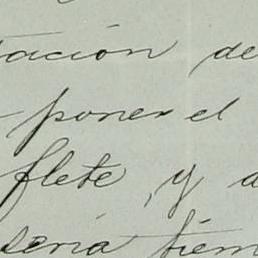 tación de
poner el
flete, y a
sería tiem